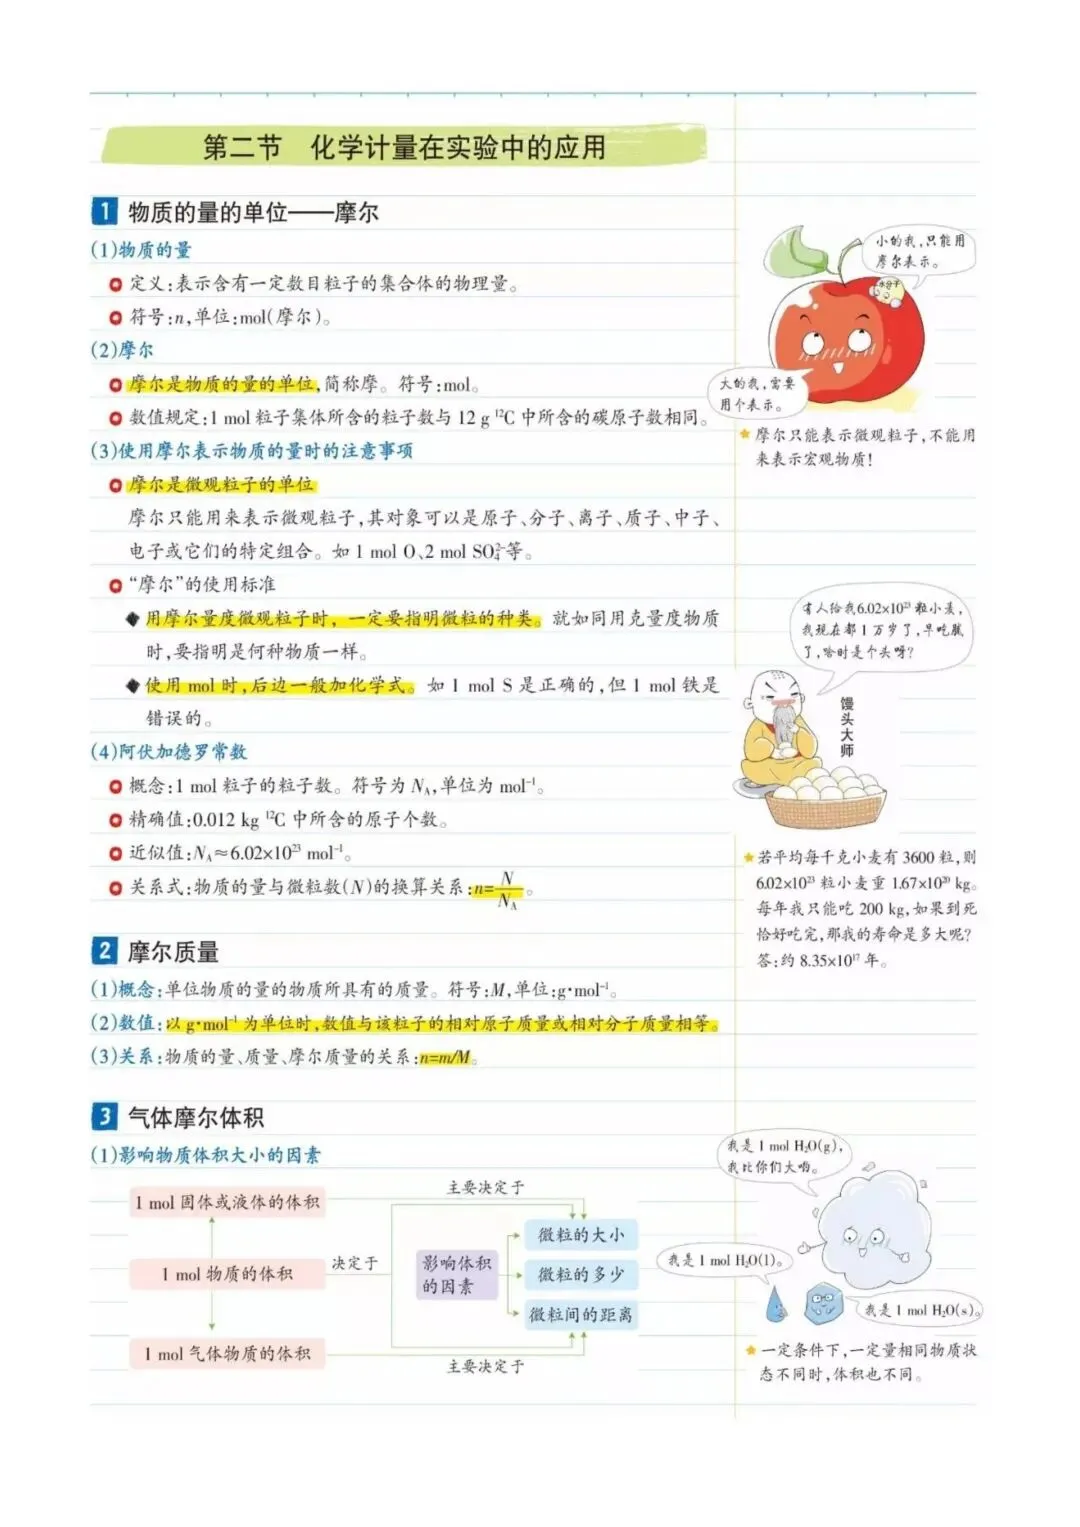 第二节 化学计量在实验中的应用
1 物质的量的单位——摩尔
(1)物质的量
定义:表示含有一定数目粒子的集合体的物理量。
符号:n,单位:mol(摩尔)。
(2)摩尔
摩尔是物质的量的单位,简称摩。符号:mol。
数值规定:1 mol 粒子集体所含的粒子数与 12 g ¹²C 中所含的碳原子数相同。
(3)使用摩尔表示物质的量时的注意事项
摩尔是微观粒子的单位
摩尔只能用来表示微观粒子,其对象可以是原子、分子、离子、质子、中子、
电子或它们的特定组合。如 1 mol O、2 mol SO₄²⁻等。
“摩尔”的使用标准
用摩尔量度微观粒子时,一定要指明微粒的种类。就如同用克量度物质
时,要指明是何种物质一样。
使用 mol 时,后边一般加化学式。如 1 mol S 是正确的,但 1 mol 铁是
错误的。
(4)阿伏加德罗常数
概念:1 mol 粒子的粒子数。符号为 N_A,单位为 mol⁻¹。
精确值:0.012 kg ¹²C 中所含的原子个数。
近似值:N_A≈6.02×10²³ mol⁻¹。
关系式:物质的量与微粒数(N)的换算关系:n=N/N_A。
2 摩尔质量
(1)概念:单位物质的量的物质所具有的质量。符号:M,单位:g·mol⁻¹。
(2)数值:以 g·mol⁻¹ 为单位时,数值与该粒子的相对原子质量或相对分子质量相等。
(3)关系:物质的量、质量、摩尔质量的关系:n=m/M。
3 气体摩尔体积
(1)影响物质体积大小的因素
1 mol 固体或液体的体积
主要决定于
1 mol 物质的体积
决定于
影响体积
的因素
微粒的大小
微粒的多少
微粒间的距离
1 mol 气体物质的体积
主要决定于
小的我,只能用
摩尔表示。
水分子
大的我,需要
用个表示。
★ 摩尔只能表示微观粒子,不能用
来表示宏观物质!
有人给我6.02×10²³ 粒小麦,
我现在都 1 万岁了,早吃腻
了,啥时是个头呀?
馒头大师
★ 若平均每千克小麦有 3600 粒,则
6.02×10²³ 粒小麦重 1.67×10²⁰ kg。
每年我只能吃 200 kg,如果到死
恰好吃完,那我的寿命是多大呢?
答:约 8.35×10¹⁷ 年。
我是 1 mol H₂O(g),
我比你们大哟。
我是 1 mol H₂O(l)。
我是 1 mol H₂O(s)。
★ 一定条件下,一定量相同物质状
态不同时,体积也不同。